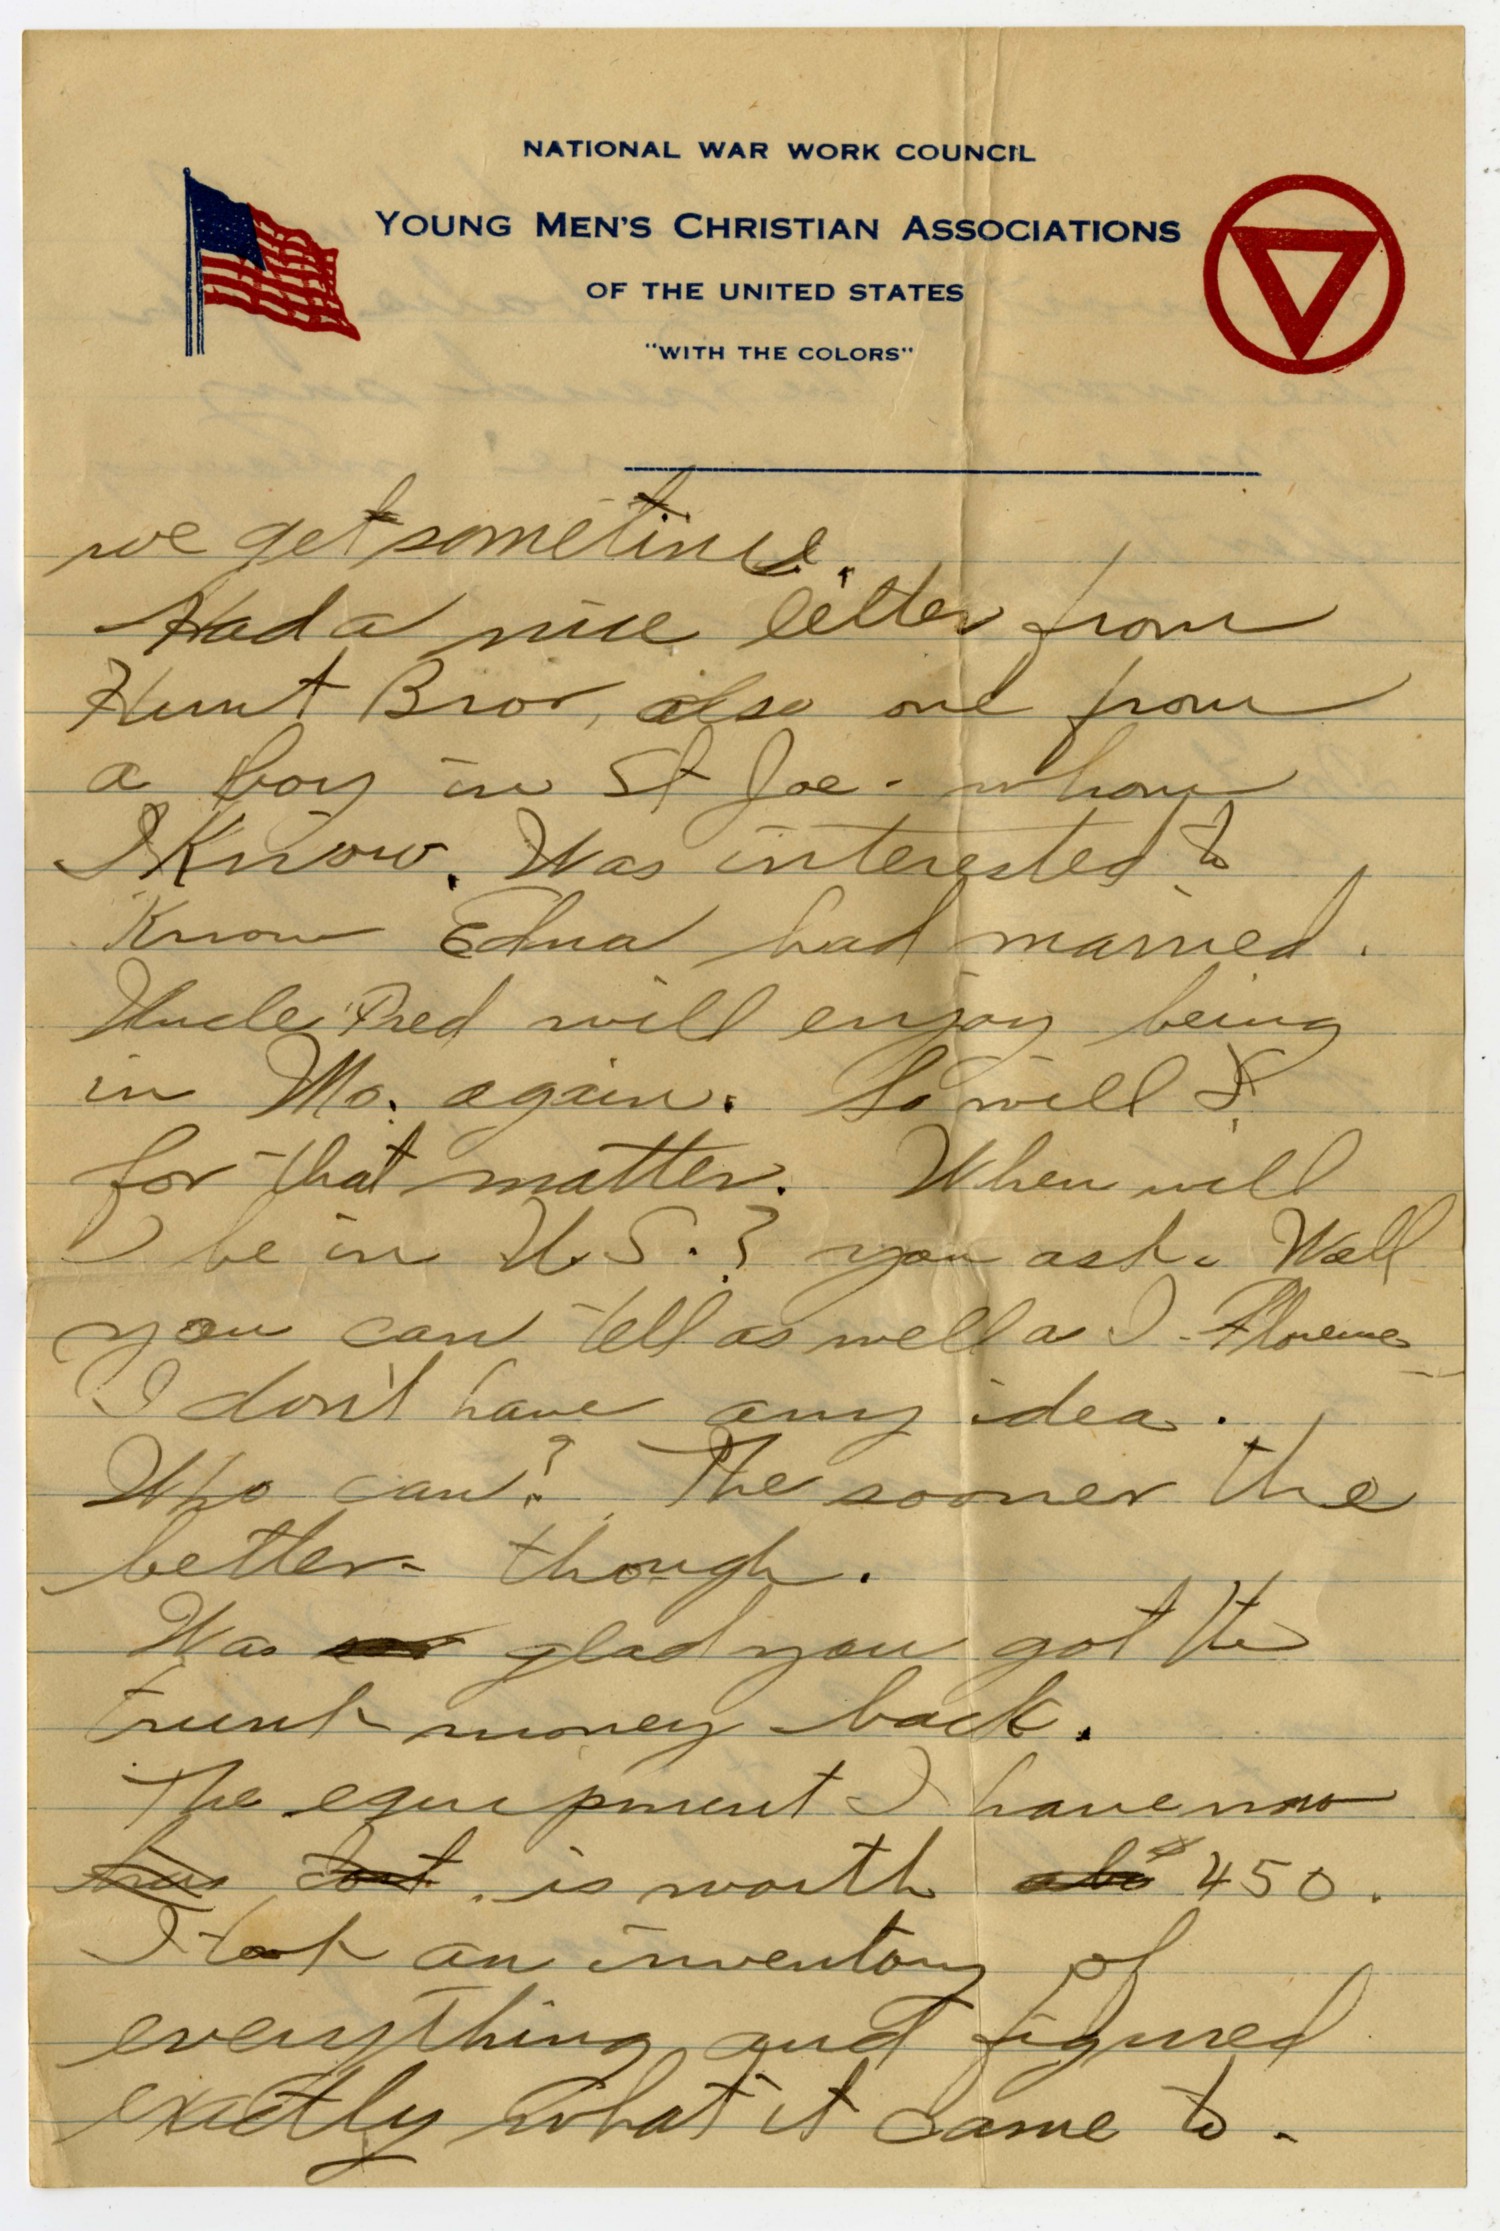 NATIONAL WAR WORK COUNCIL
YOUNG MEN'S CHRISTIAN ASSOCIATIONS
OF THE UNITED STATES
"WITH THE COLORS"
we get sometime.
Had a nice letter from
Hunt Bros, also one from
a boy in St Joe - whom
I Know. Was interested to
Know Edna had married.
Uncle Fred will enjoy being
in Mo. again. So will I
for that matter. When will
I be in U.S.? you ask. Well
you can tell as well as I - Florence
I don't have any idea.
Who can? The sooner the
better - though.
Was glad you got the
trunk money back.
The equipment I have now
has cost is worth $450.
I took an inventory of
everything and figured
exactly what it came to.